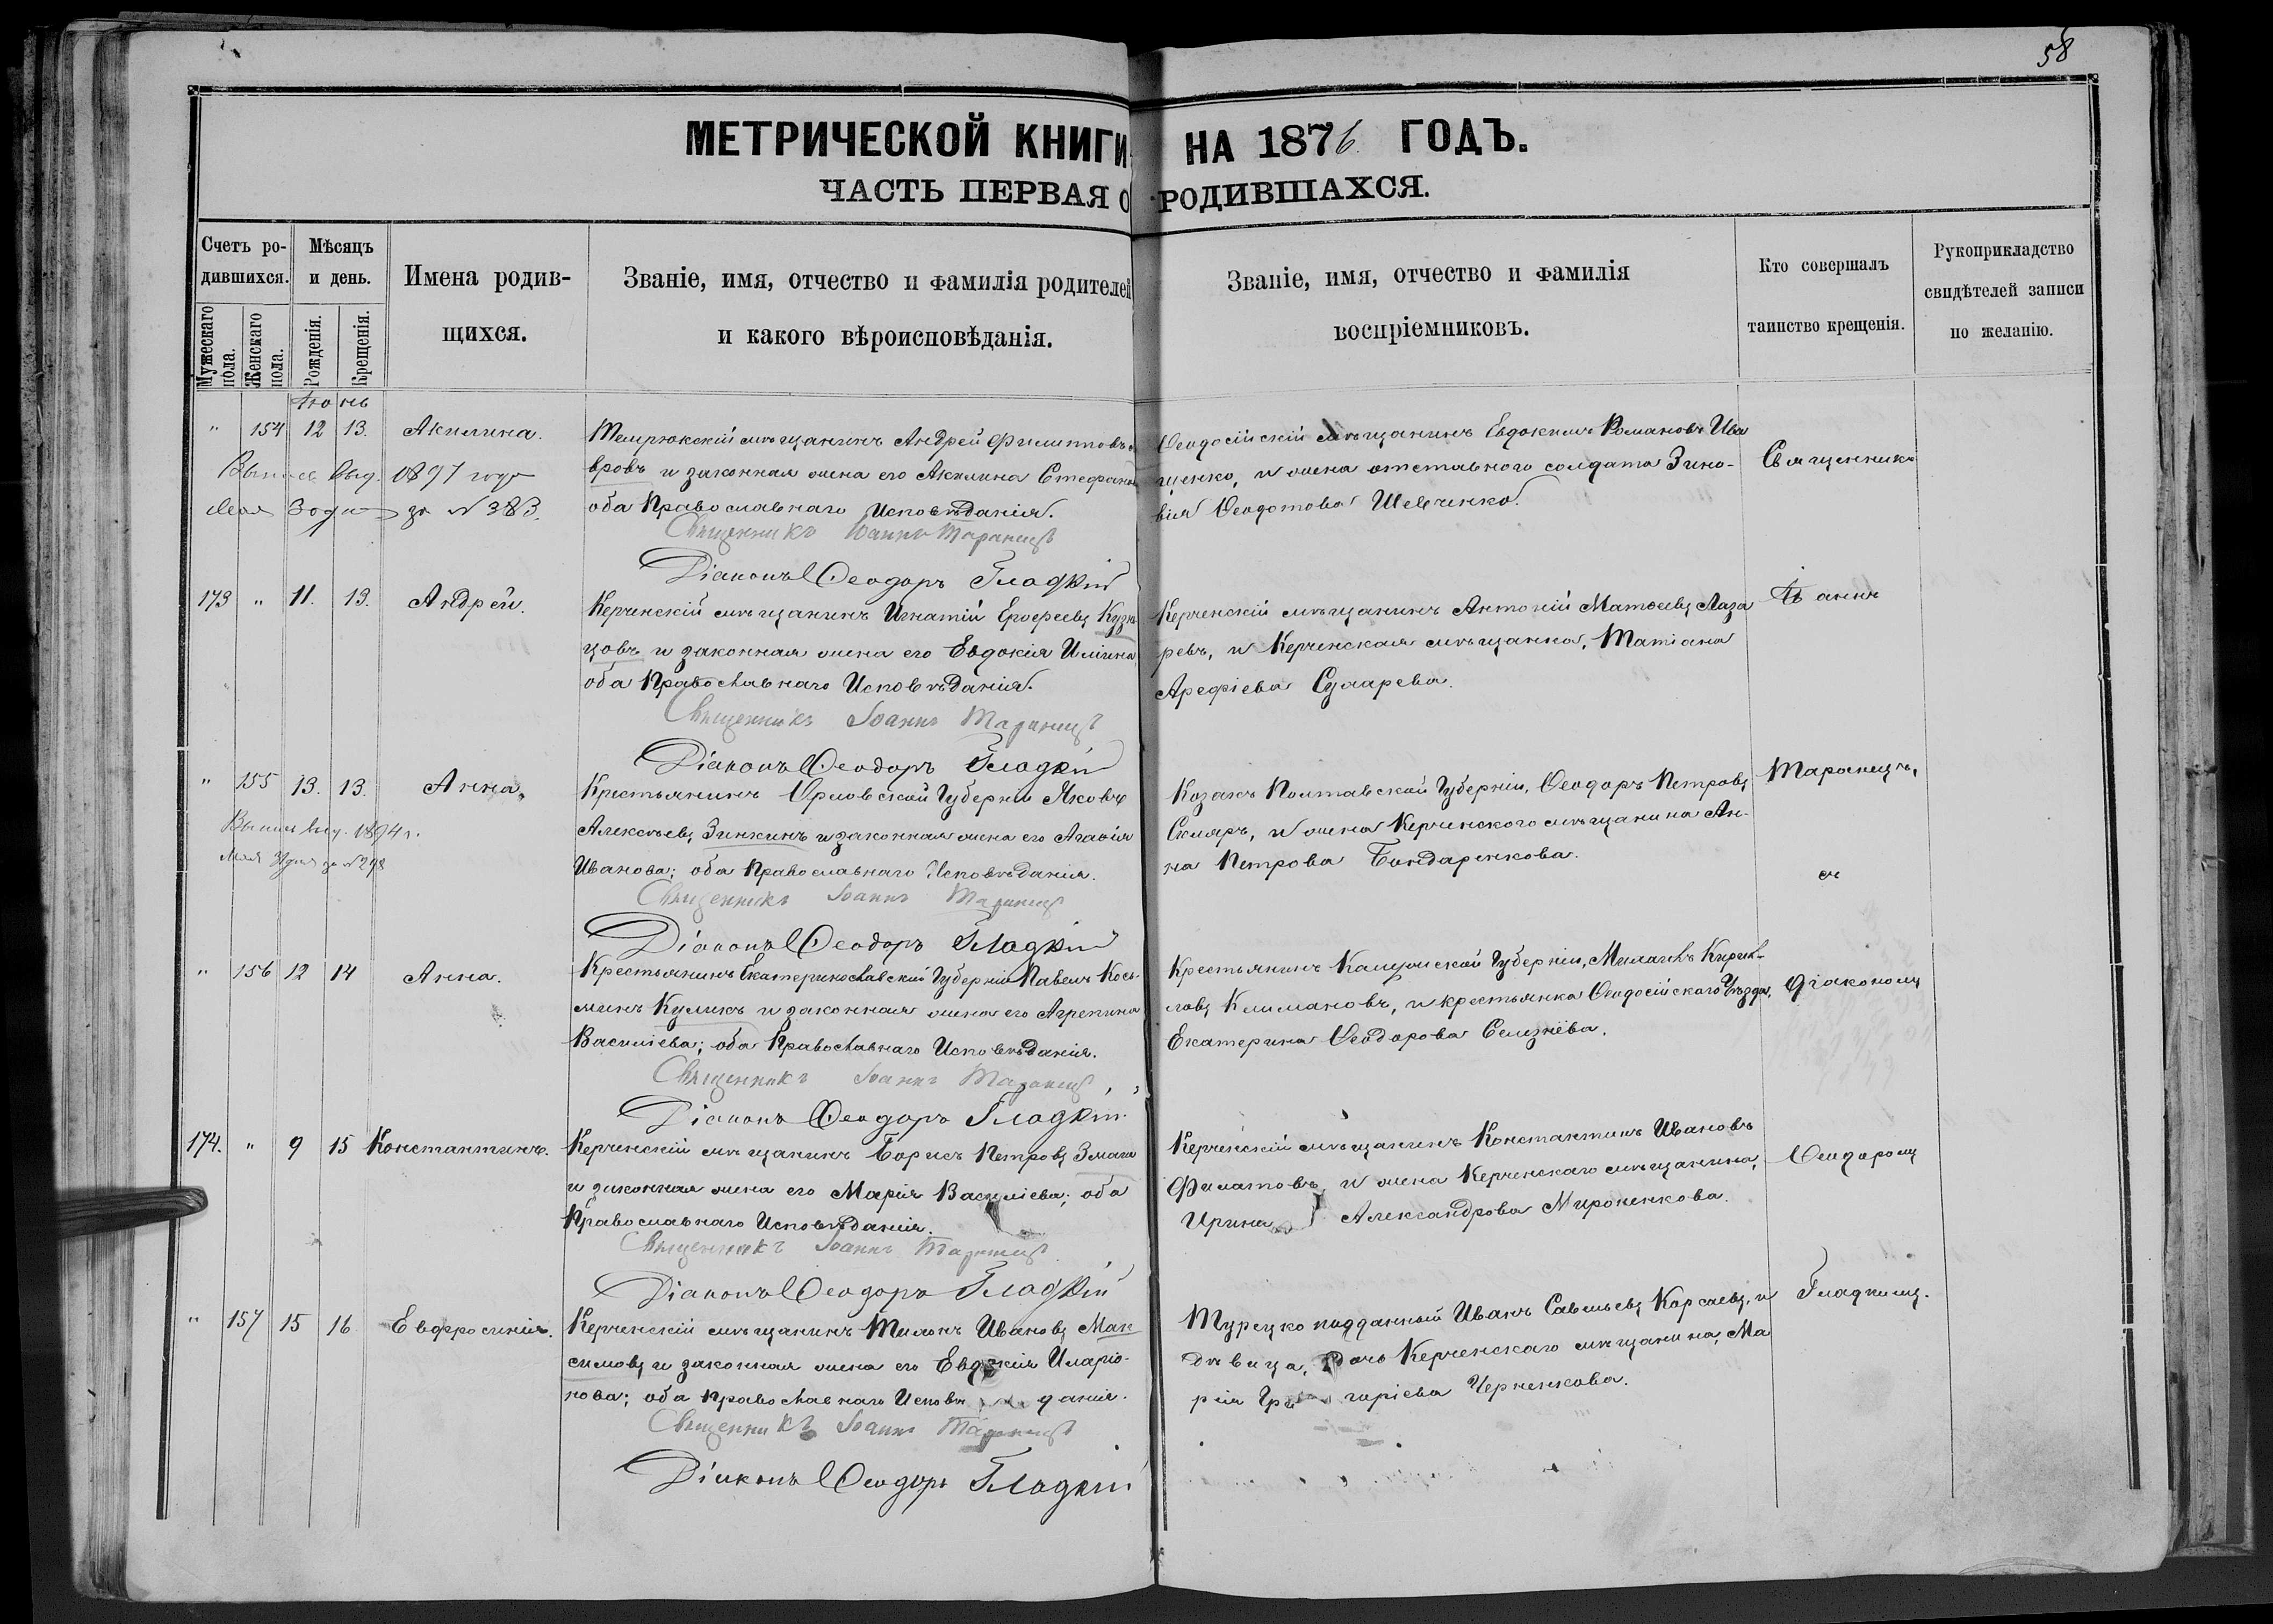 58
МЕТРИЧЕСКОЙ КНИГИ НА 1876 ГОДЪ.
ЧАСТЬ ПЕРВАЯ О РОДИВШАХСЯ.
Счетъ ро-
дившихся.
Мужескаго пола.
Женскаго пола.
Мѣсяцъ
и день.
Рожденія.
Крещенія.
Имена родив-
щихся.
Званіе, имя, отчество и фамилія родителей
и какого вѣроисповѣданія.
Званіе, имя, отчество и фамилія
воспріемниковъ.
Кто совершалъ
таинство крещенія.
Рукоприкладство
свидѣтелей записи
по желанію.
Іюнь
" 154 12 13. Акилина.
Выпись выд. 1897 года
за № 383.
Темрюкскій мѣщанинъ Андрей Филиповъ
вровъ и законная жена его Акилина Стефанов
оба Православнаго Исповѣданія.
Священникъ Іоаннъ Таранецъ
Діаконъ Ѳеодоръ Гладкій
Ѳеодосійскій мѣщанинъ Евдокимъ Романовъ Ива
щенко, и жена отставного солдата Зино-
вія Ѳеодотова Шевченко.
173 " 11. 13. Андрей.
Керченскій мѣщанинъ Игнатій Ерофеевъ Кузне
цовъ и законная жена его Евдокія Иліина
оба Православнаго Исповѣданія.
Священникъ Іоаннъ Таранецъ
Діаконъ Ѳеодоръ Гладкій
Керченскій мѣщанинъ Антоній Матѳеевъ Лаза
ревъ, и Керченская мѣщанка, Татіана
Арефіева Сударева.
" 155 13. 13. Анна.
Выпись выд. 1894 г.
Мая 31 дня за № 298
Крестьянинъ Орловской Губерніи Яковъ
Алексѣевъ Зинкинъ и законная жена его Агаѳія
Иванова; оба Православнаго Исповѣданія.
Священникъ Іоаннъ Таранецъ
Діаконъ Ѳеодоръ Гладкій
Козакъ Полтавской Губерніи, Ѳеодоръ Петровъ
Скляръ, и жена Керченского мѣщанина Ан-
на Петрова Бондаренкова.
" 156 12 14 Анна.
Крестьянинъ Екатеринославской Губерніи Павелъ Кось-
минъ Куликъ и законная жена его Агрепина
Василіева; оба Православнаго Исповѣданія.
Священникъ Іоаннъ Таранецъ
Діаконъ Ѳеодоръ Гладкій
Крестьянинъ Калужской Губерніи, Михаилъ Кирил-
ловъ Климановъ, и крестьянка Ѳеодосійскаго Уѣзда,
Екатерина Ѳеодорова Селизнёва.
174. " 9 15 Константинъ.
Керченскій мѣщанинъ Борисъ Петровъ Змага
и законная жена его Марія Василіева; оба
Православнаго Исповѣданія.
Священникъ Іоаннъ Таранецъ
Діаконъ Ѳеодоръ Гладкій
Керченскій мѣщанинъ Константинъ Ивановъ
Филатовъ, и жена Керченскаго мѣщанина,
Ирина Александрова Мироненкова.
" 157 15 16 Евфросинія.
Керченскій мѣщанинъ Тихонъ Ивановъ Мак
симовъ и законная жена его Евдокія Иларіо-
нова; оба Православнаго Исповѣданія.
Священникъ Іоаннъ Таранецъ
Діаконъ Ѳеодоръ Гладкій
Турецко подданный Иванъ Савельевъ Карсаевъ, и
дѣвица, дочь Керченскаго мѣщанина, Ма
рія Григоріева Черненкова.
Священникъ
Іоаннъ
Таранецъ,
съ
Діакономъ
Ѳеодоромъ
Гладкимъ.